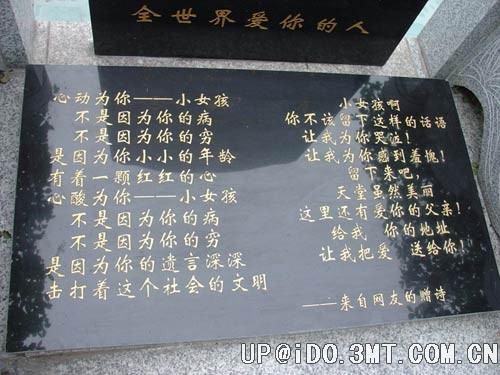 全世界爱你的人
心动为你——小女孩
不是因为你的病
不是因为你的穷
是因为你小小的年龄
有着一颗红红的心
心酸为你——小女孩
不是因为你的病
不是因为你的穷
是因为你的遗言深深
击打着这个社会的文明
小女孩啊
你不该留下这样的话语
让我为你哭泣!
让我为你感到羞愧!
留下来吧,
天堂虽然美丽
这里还有爱你的父亲!
给我 你的地址
让我把爱 送给你!
——来自网友的赠诗
UP@iDO.3MT.COM.CN